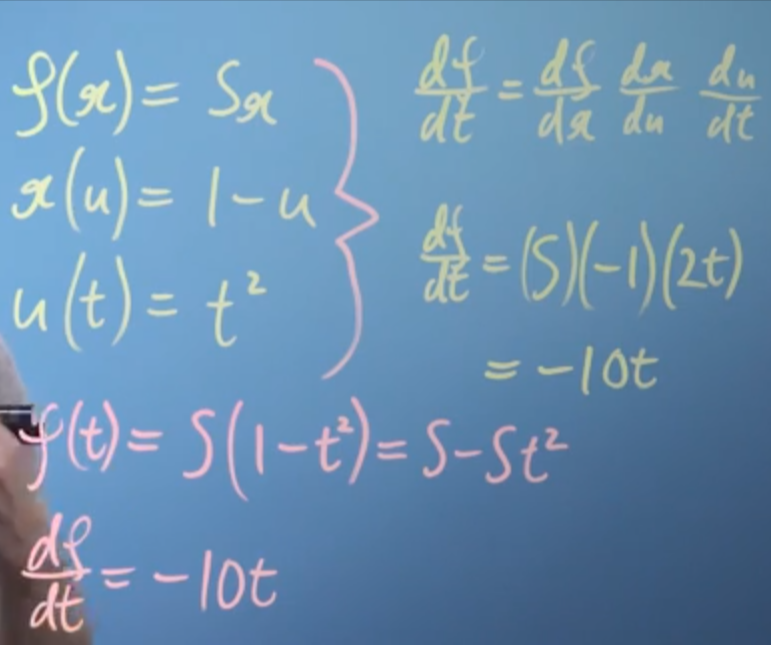 f(x) = 5x
x(u) = 1 - u
u(t) = t²
df/dt = df/dx dx/du du/dt
df/dt = (5)(-1)(2t)
= -10t
f(t) = 5(1-t²) = 5-5t²
df/dt = -10t